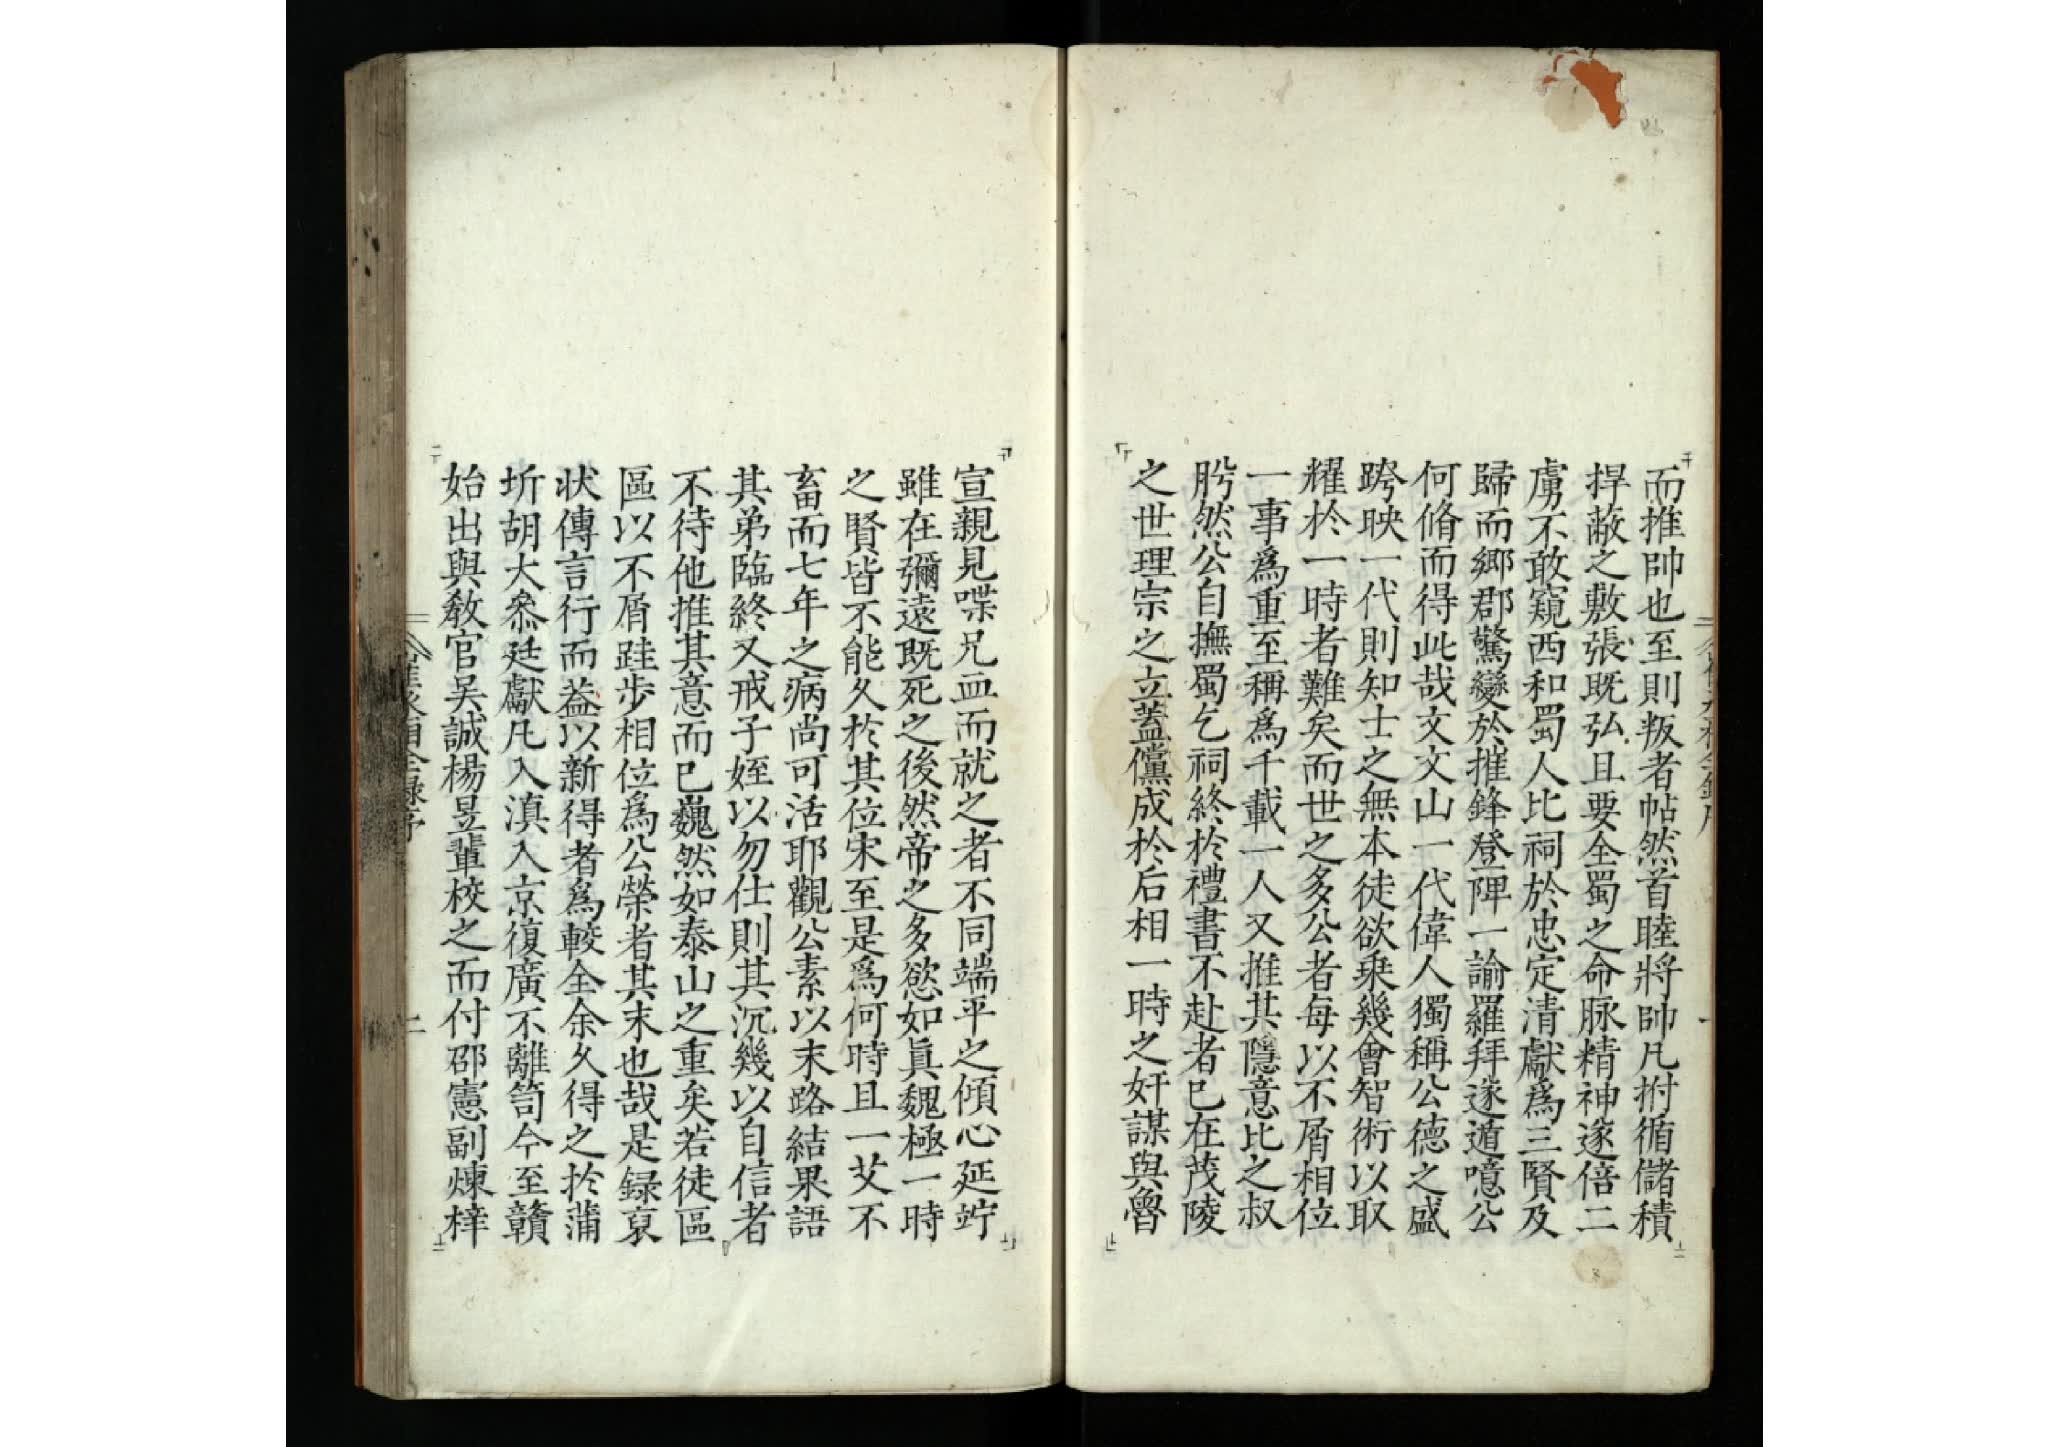 而推帥也至則叛者帖然首睦將帥凡拊循儲積
捍蔽之敷張既弘且要全蜀之命脉精神遂倍二
虜不敢窺西和蜀人比祠於忠定清獻爲三賢及
歸而鄉郡驚變於摧鋒登陴一諭羅拜遂遁噫公
何脩而得此哉文文山一代偉人獨稱公德之盛
跨映一代則知士之無本徒欲乗幾會智術以取
耀於一時者難矣而世之多公者每以不屑相位
一事爲重至稱爲千載一人又推其隱意比之叔
肸然公自撫蜀乞祠終於禮書不赴者巳在茂陵
之世理宗之立蓋儻成於后相一時之奸謀與魯
宣親見喋兄血而就之者不同端平之傾心延竚
雖在彌遠既死之後然帝之多慾如眞魏極一時
之賢皆不能久於其位宋至是爲何時且一艾不
畜而七年之病尚可活耶觀公素以末路結果語
其弟臨終又戒子姪以勿仕則其沉幾以自信者
不待他推其意而巳巍然如泰山之重矣若徒區
區以不屑跬步相位爲公榮者其末也哉是録裒
状傳言行而益以新得者爲較全余久得之於蒲
圻胡大叅廷獻凡入滇入京復廣不離笥今至贛
始出與敎官吴誠楊昱輩校之而付邵憲副煉梓
二